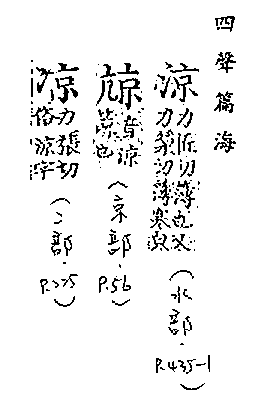 四聲篇海
涼
力匠切薄也又
力漿切薄寒皃
(水部.P.435-1)
音涼
也
(京部.P.56)
凉
力張切
俗涼字
(冫部.